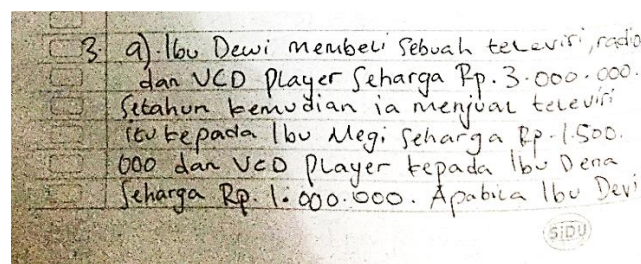 3. a). Ibu Dewi membeli sebuah televisi, radio
dan VCD Player seharga Rp. 3.000.000.
Setahun kemudian ia menjual televisi
itu kepada Ibu Megi seharga Rp. 1.500.
000 dan VCD Player kepada Ibu Dena
seharga Rp. 1.000.000. Apabila Ibu Devi
SiDU